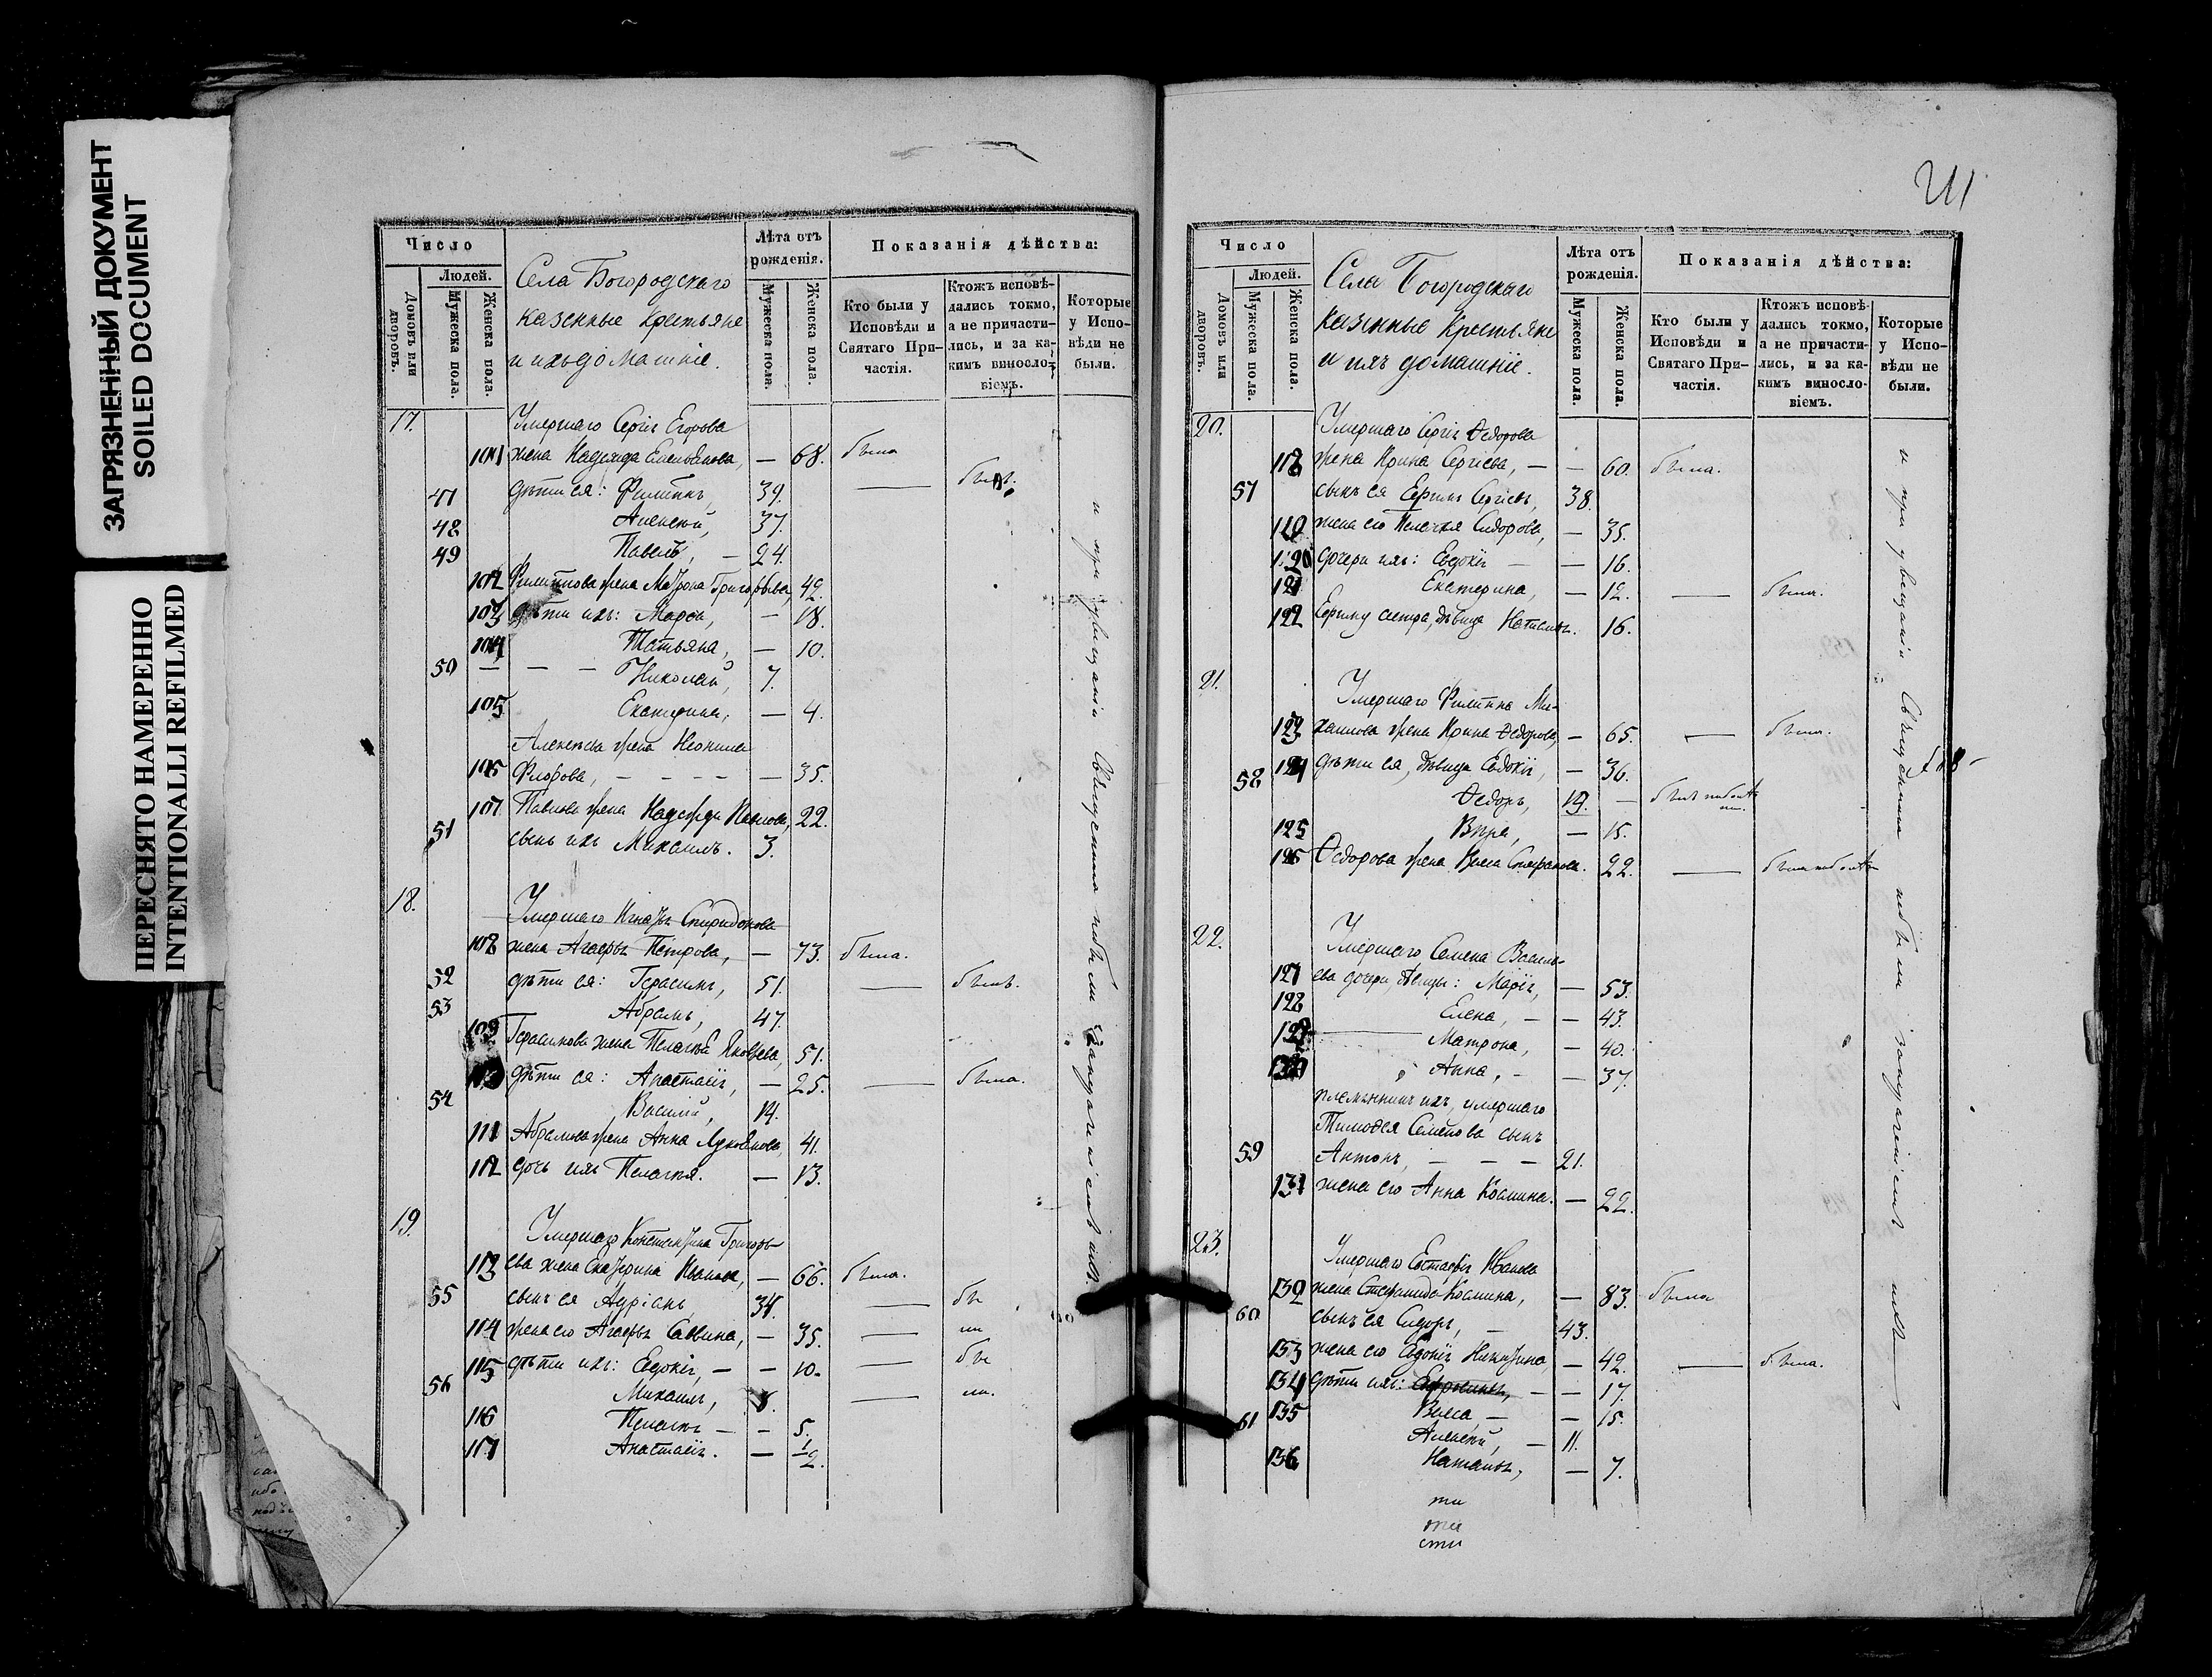 ЗАГРЯЗНЕННЫЙ ДОКУМЕНТ
SOILED DOCUMENT
ПЕРЕСНЯТО НАМЕРЕННО
INTENTIONALLI REFILMED
Число
Людей.
Домовъ или дворовъ.
Мужеска пола.
Женска пола.
Села Богородскаго
казенные крестьяне
и ихъ домашніе.
Лѣта отъ рожденія.
Мужеска пола.
Женска пола.
Показанія дѣйства:
Кто были у Исповѣди и Святаго При-частія.
Ктожъ исповѣ-дались токмо, а не причасти-лись, и за ка-кимъ винословіемъ.
Которые у Испо-вѣди не были.
17. Умершаго Сергія Егорова
101 жена Надежда Емельянова, — 68. была
47 дѣти ея: Филиппъ, 39. — былъ.
48 Алексѣй, 37.
49 Павелъ, — 24.
102 Филиппова жена Матрона Григорьева, 42.
103 дѣти ихъ: Марѳа, — 18.
104 Татьяна, — 10.
50 — — — Николай, 7.
105 Екатерина, — 4.
Алексѣева жена Неонила
106 Флорова, — — — — 35.
107 Павлова жена Надежда Павлова, 22.
51 сынъ ихъ Михаилъ. 3.
18. Умершаго Игнатія Спиридонова
108 жена Агафья Петрова, — 73. была.
52 дѣти ея: Герасимъ, 51. — былъ.
53 Абрамъ, 47.
109 Герасимова жена Пелагія Яковлева, 51.
110 дѣти ея: Анастасія, — 25. — была.
54 Василій, 14.
111 Абрамова жена Анна Лукоянова, 41.
112 дочь ихъ Пелагія. — 13.
19. Умершаго Константина Григорь-
113 ева жена Екатерина Иванова, — 66. была.
55 сынъ ея Адріанъ, 34. — бы
114 жена его Агафья Саввина, — 35. — ли
115 дѣти ихъ: Евдокія, — — 10. — бы
56 Михаилъ, 8. — ли.
116 Пелагія — — 5.
117 Анастасія. — 1/2.
и при увѣщаніи Священника небыли
211
Число
Людей.
Домовъ или дворовъ.
Мужеска пола.
Женска пола.
Села Богородскаго
казенные крестьяне
и ихъ домашніе.
Лѣта отъ рожденія.
Мужеска пола.
Женска пола.
Показанія дѣйства:
Кто были у Исповѣди и Святаго При-частія.
Ктожъ исповѣ-дались токмо, а не причасти-лись, и за ка-кимъ винословіемъ.
Которые у Испо-вѣди не были.
20. Умершаго Сергія Ѳедорова
118 жена Ирина Сергіева, — — 60. была.
57 сынъ ея Ермилъ Сергіевъ, 38.
119 жена его Пелагія Сидорова, — 35.
120 дочери ихъ: Евдокія — — 16.
121 Екатерина, — 12. — была.
122 Ермилу сестра, дѣвица Наталія. 16.
21. Умершаго Филиппа Ми-
123 хаилова жена Ирина Ѳедорова, — 65. — была.
124 дѣти ея, дѣвица Евдокія, — 36.
58 Ѳедоръ, 19. —
125 Вѣра, — 15.
126 Ѳедорова жена Васса Стефанова. 22. —
22. Умершаго Семена Василь-
127 ева дочери, дѣвицы: Марія, — 53.
128 Елена, — — 43.
129 Матрона, — 40.
130 Анна, — — 37.
племянникъ ихъ, умершаго
Тимоѳея Семенова сынъ
59 Антонъ, — — — 21.
131 жена его Анна Косьмина. — 22.
23. Умершаго Евстафія Иванова
132 жена Стефанида Косьмина, — 83. была
60 сынъ ея Сидоръ, — 43.
133 жена его Евдокія Никитина, — 42. — была.
134 дѣти ихъ: Ефросинія, — — 17.
135 Васса, — — 15.
61 Алексѣй, — 11.
136 Наталія, — 7.
ти
сти
и при увѣщаніи Священника небыли